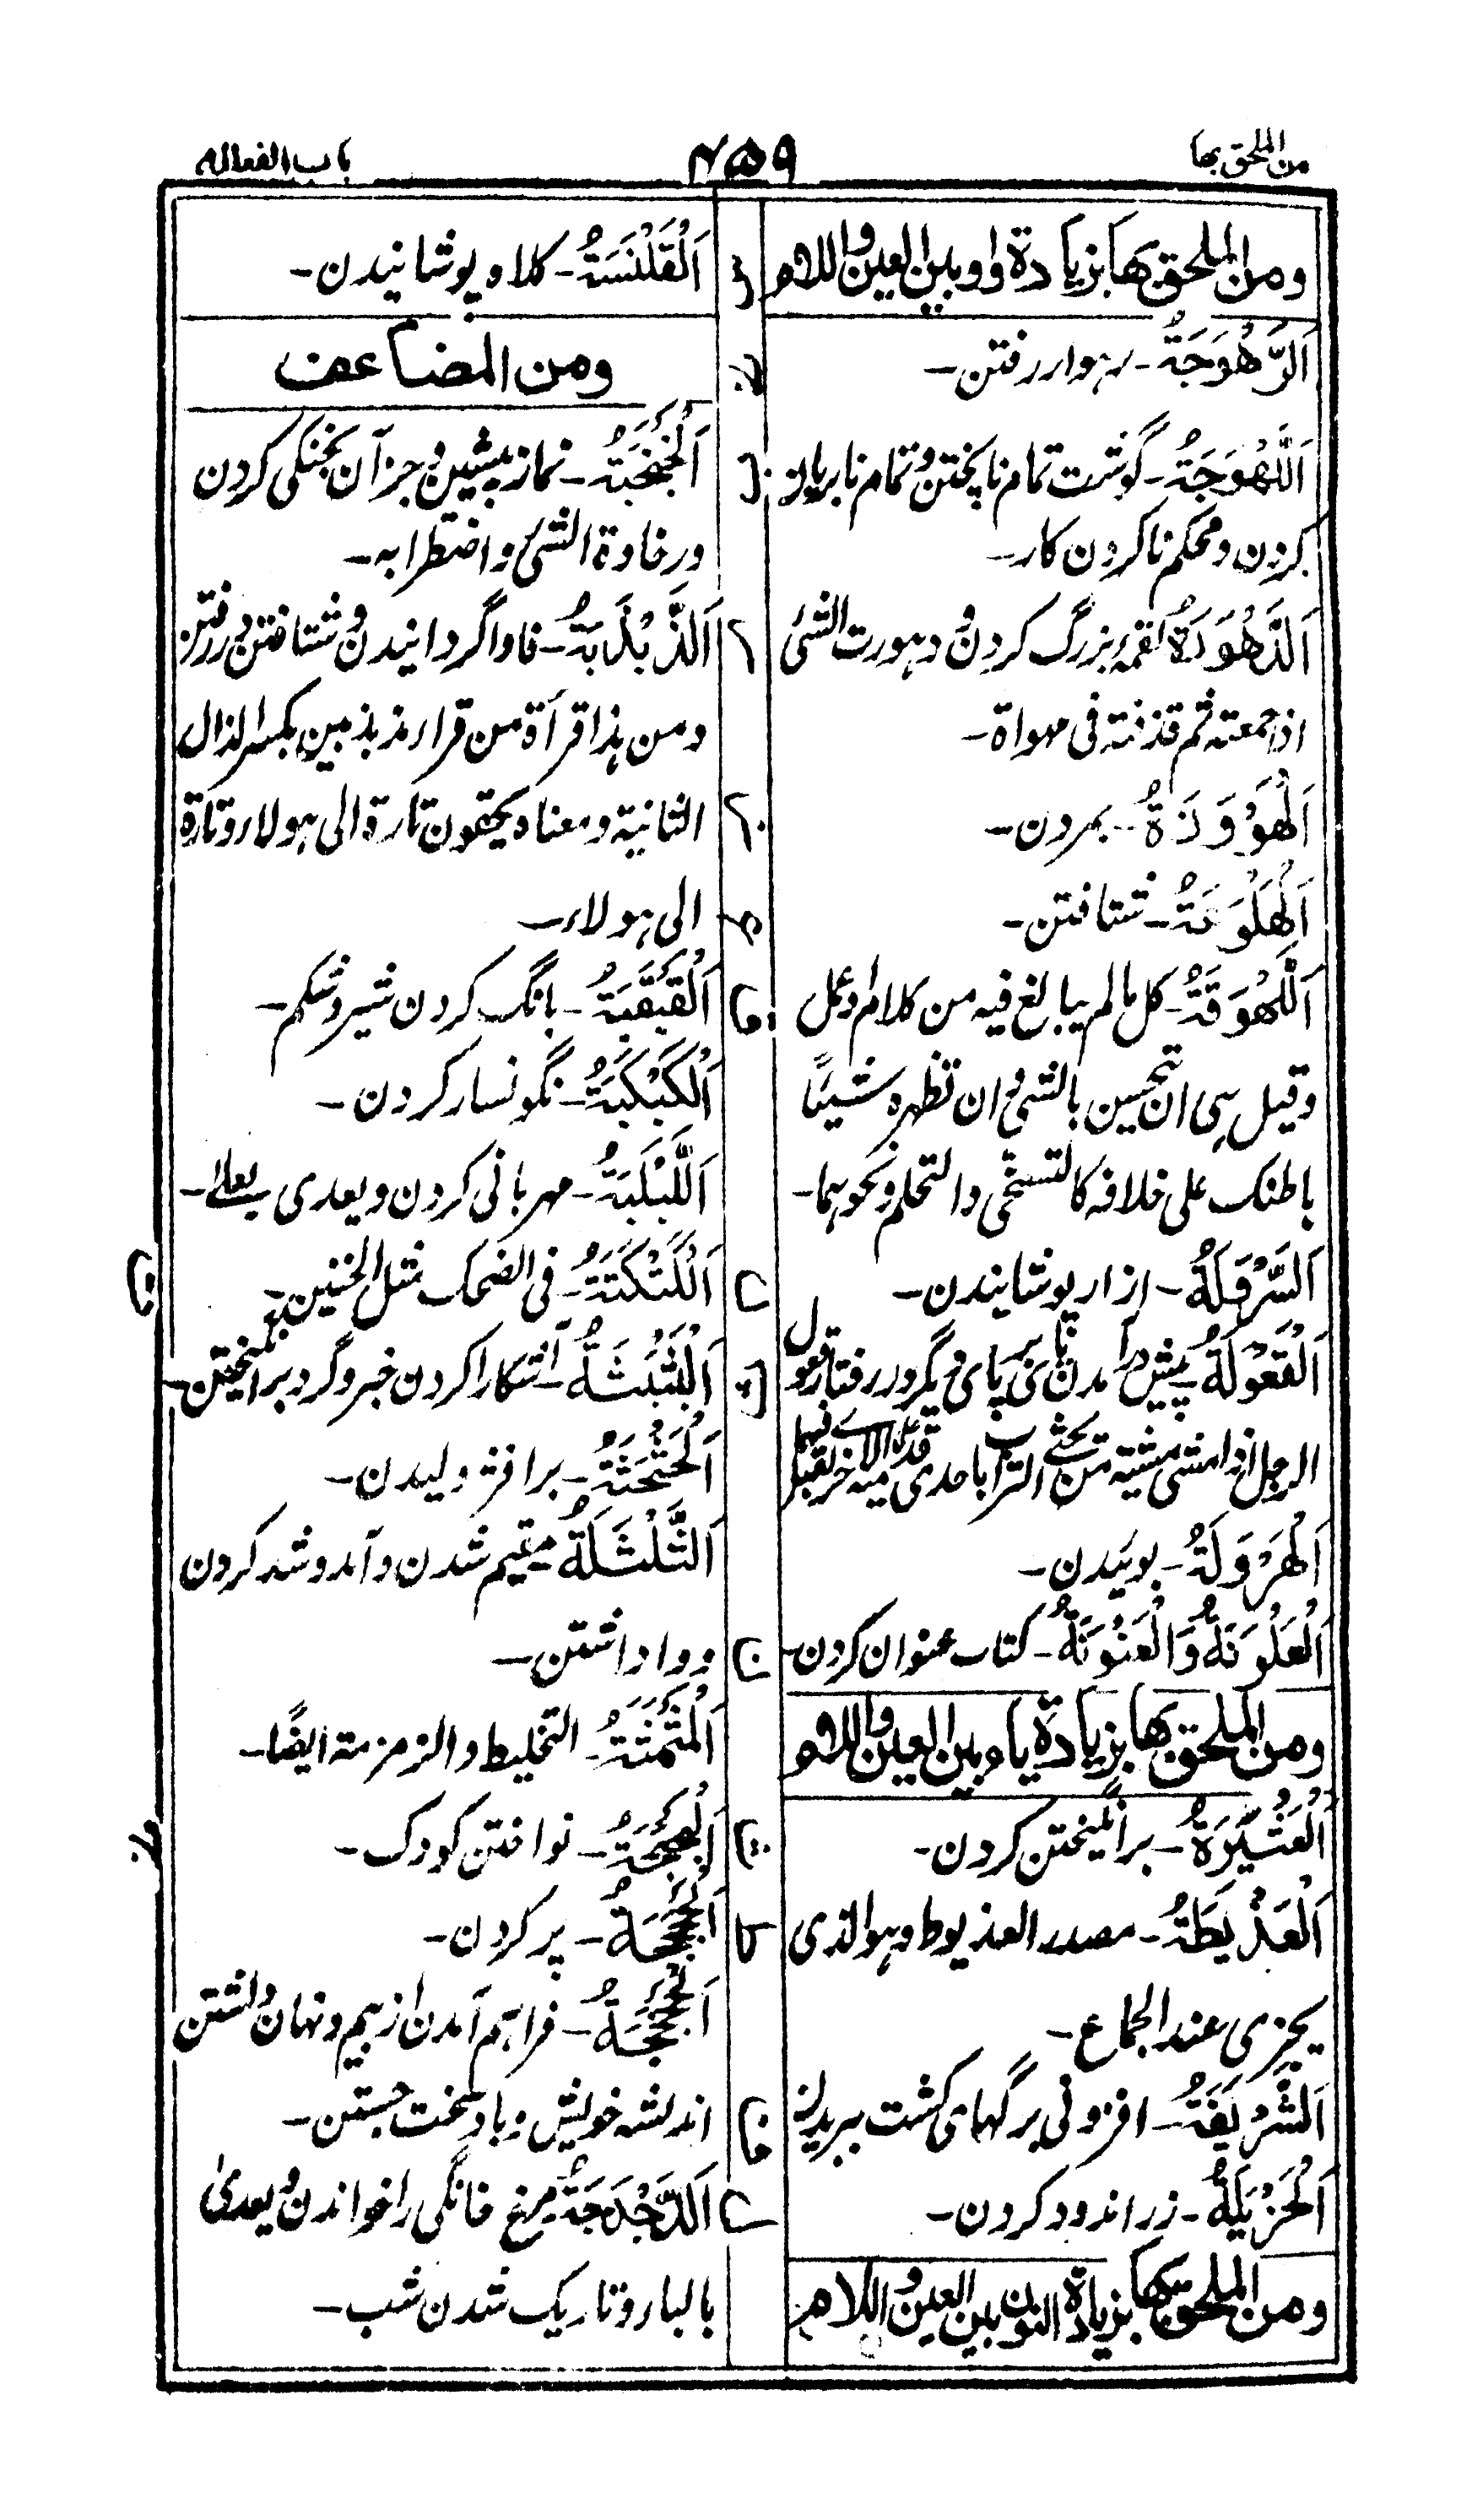 من الملحق بها
۴۵۹
باب الفعلله
ومن الملحق بها بزيادة واو بين العين واللام
اَلرَّهْوَجَةُ - رہوار رفتن -
اَللَّهْوَجَةُ - گوشت تمام ناپختن و تمام نابریان
کردن و محکم ناکردن کار -
اَلدَّهْوَرَةُ لقمہ بزرگ کردن و دہورت الشئ
اذا جمعتہ ثم قذفتہ فی مہواة -
اَلْهَوْوَذَةُ - بمردن -
اَلْهَلْوَعَةُ - شتافتن -
اَللَّهْوَقَةُ - کل ما لم یبالغ فیہ من کلام او عمل
وقیل ہی ان تحسین بالشئ و ان تظہرہ شیئاً
باطنک علی خلافہ کالتسخی و التحلم و نحوہما -
اَلسَّرْوَلَةُ - ازار پوشانیدن -
اَلْقَعْوَلَةُ - پیش آمدن پای بر پای دیگر در رفتار قعول
الرجل اذا مشی مشیة من یحثی التراب باحدی قدمیہ علی الاخری لقبل فیہما
اَلْهَرْوَلَةُ - پوئیدن -
اَلْعَلْوَنَةُ وَالْعَنْوَنَةُ - کتاب عنوان کردن -
ومن الملحق بها بزيادة ياء بين العين واللام
اَلْعَثْيَرَةُ - برانگیختن کردن -
اَلْعَذْيَطَةُ - مصدر العذیوط وہو الذی
یخزی عند الجماع -
اَلشَّرْيَفَةُ - افزونی برگہای کشت بریدن
اَلْحَزْيَلَةُ - زر اندود کردن -
ومن الملحق بها بزيادة النون بين العين واللام
اَلْقَلَنْسَةُ - کلاہ پوشانیدن -
ومن المضاعف
اَلْخَبْخَبَةُ - نماز پیشین و جز آن بخنکی کردن
ورخاوة الشئ و اضطرابہ -
اَلذَّبْذَبَةُ - فاواگردانیدن و شتافتن و رفتن
ومن ہذا قرآة من قرا مذبذبین بکسر الذال
الثانیة و معناہ یحقون تارة الی ہولاء و تارة
الی ہولاء -
اَلْقَبْقَبَةُ - بانگ کردن شیر و شکم -
اَلْكَبْكَبَةُ - نگونسار کردن -
اَللَّبْلَبَةُ - مہربانی کردن و یعدی بعلی -
اَلْكَتْكَتَةُ - فی الضحک مثل الخنین -
اَلْبَثْبَثَةُ - آشکارا کردن خبر و گرد برانگیختن -
اَلْحَثْحَثَةُ - برافژولیدن -
اَلثَّلْثَلَةُ - مقیم شدن و آمد و شد کردن
وواداشتن -
اَلْمَثْمَثَةُ - التخلیط و الزمزمة ایضًا -
اَلْبَجْبَجَةُ - نواختن کودک -
پر کردن -
فراہم آمدن از بیم و نہان داشتن
اندیشہ خویش و باد سخت جستن -
اَلدَّجْدَجَةُ مرغ خانگی را خواندن و یعدی
بالباء و تاریک شدن شب -